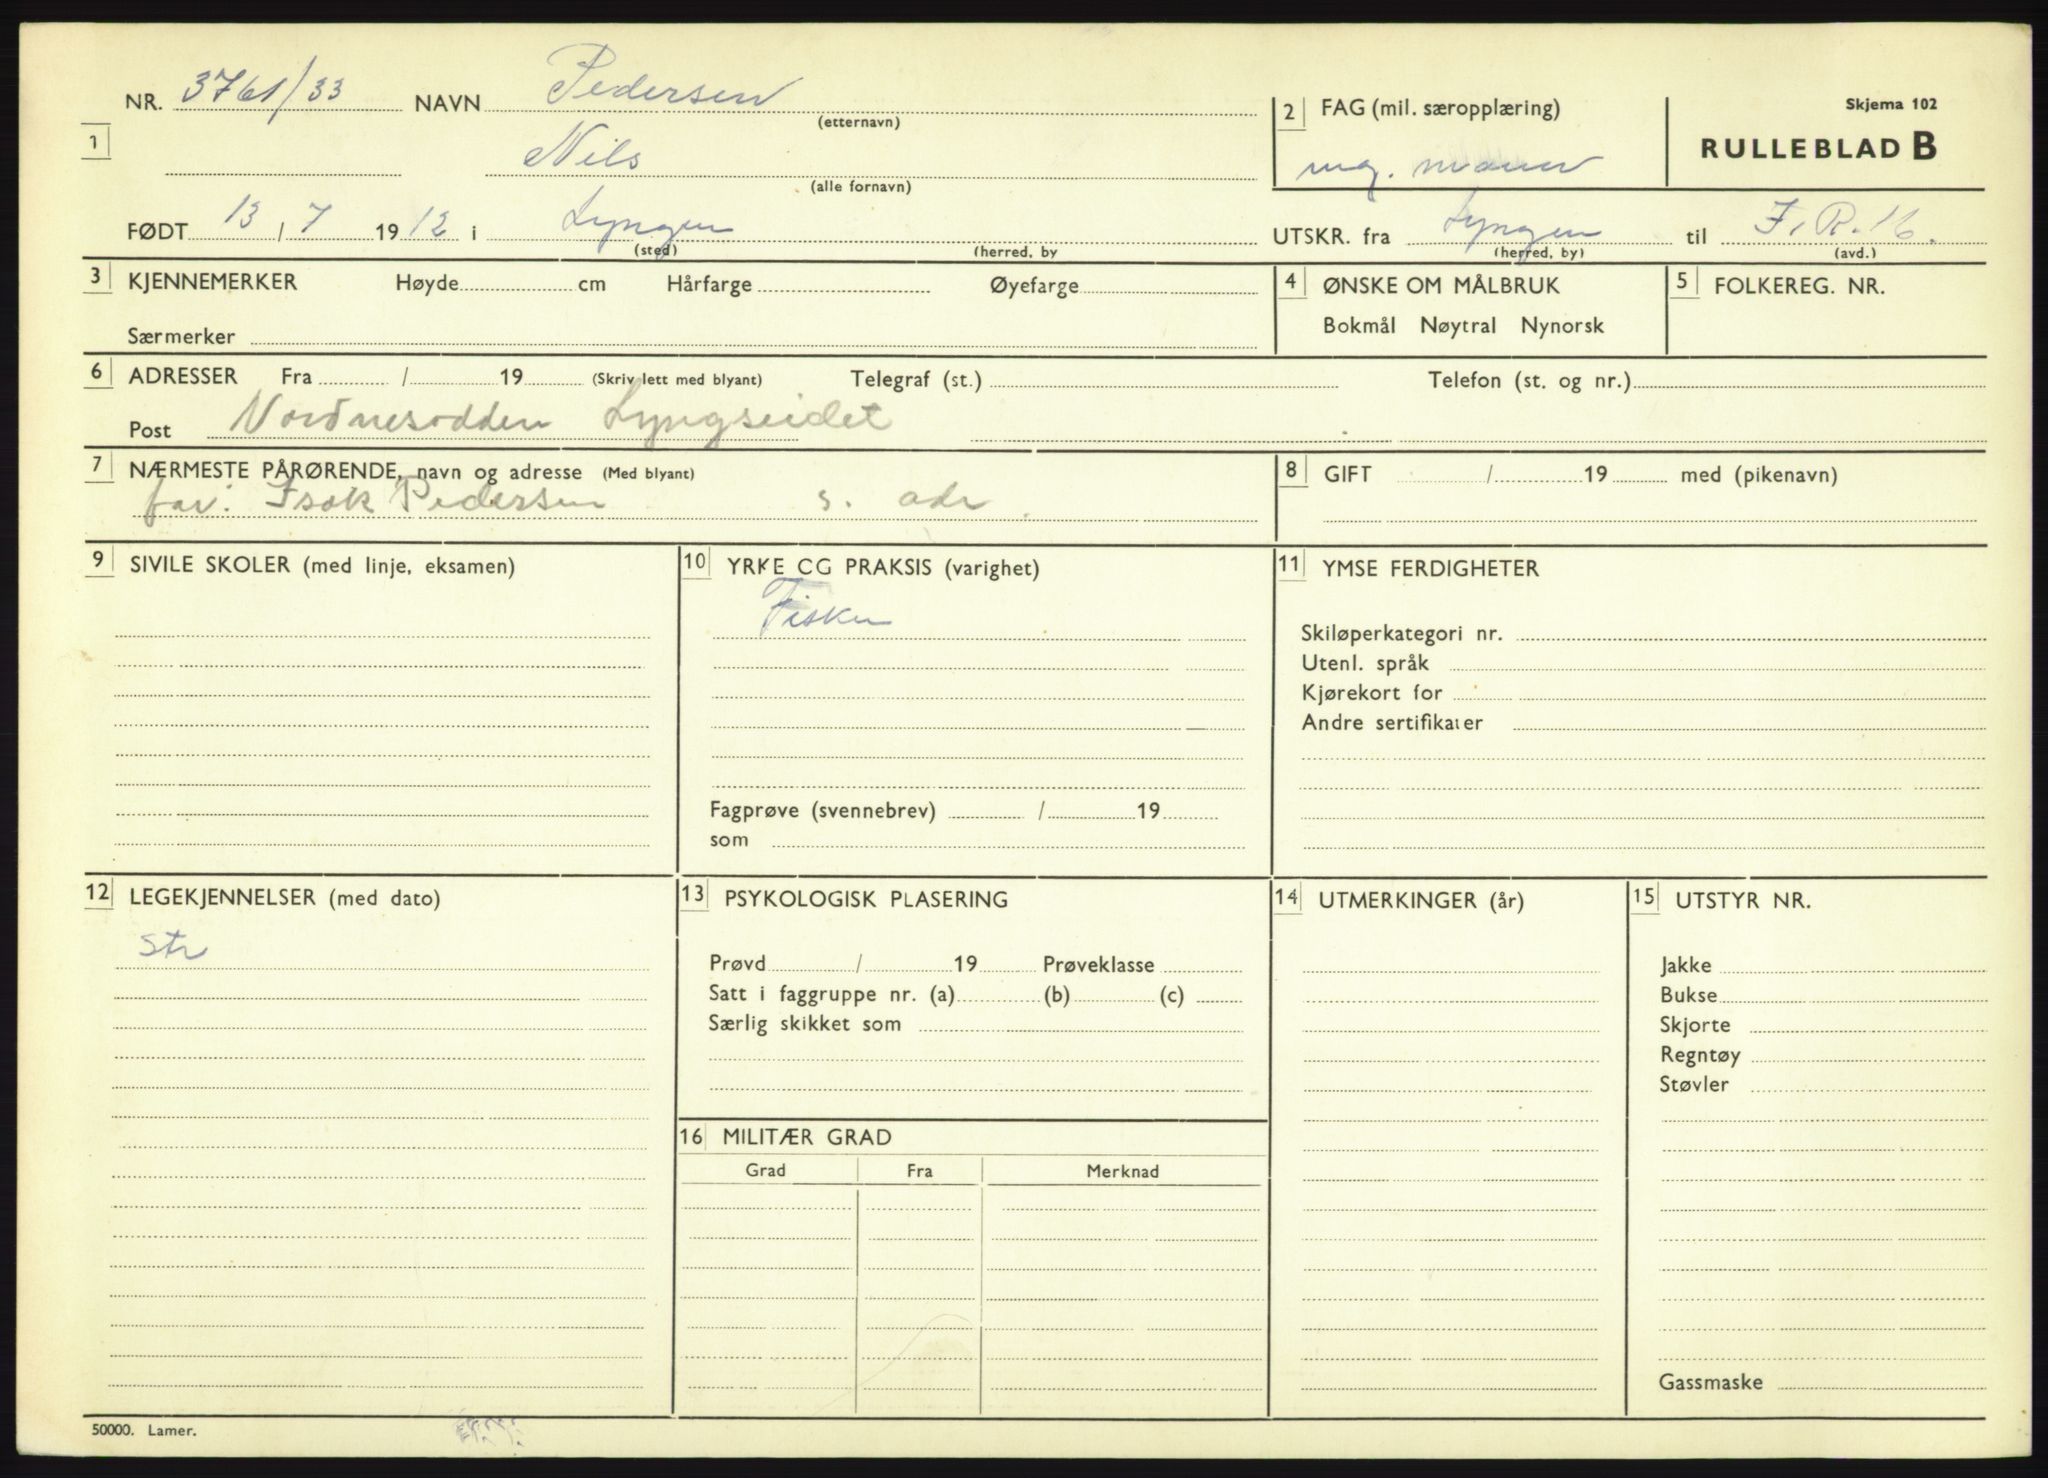 NR. 3761/33 NAVN Pedersen
(etternavn)
1 Nils
(alle fornavn)
2 FAG (mil. særopplæring)
mg. mann
Skjema 102
RULLEBLAD B
FØDT 13 / 7 1912 i Lyngen
(sted) (herred, by
UTSKR. fra Lyngen til I.R. 16.
(herred, by) (avd.)
3 KJENNEMERKER Høyde cm Hårfarge Øyefarge
Særmerker
4 ØNSKE OM MÅLBRUK
Bokmål Nøytral Nynorsk
5 FOLKEREG. NR.
6 ADRESSER Fra / 19 (Skriv lett med blyant) Telegraf (st.) Telefon (st. og nr.)
Post Nordnesodden Lyngseidet
7 NÆRMESTE PÅRØRENDE, navn og adresse (Med blyant)
far: Isak Pedersen s. adr.
8 GIFT / 19 med (pikenavn)
9 SIVILE SKOLER (med linje, eksamen)
10 YRKE CG PRAKSIS (varighet)
Fisker
Fagprøve (svennebrev) / 19
som
11 YMSE FERDIGHETER
Skiløperkategori nr.
Utenl. språk
Kjørekort for
Andre sertifikater
12 LEGEKJENNELSER (med dato)
str
13 PSYKOLOGISK PLASERING
Prøvd / 19 Prøveklasse
Satt i faggruppe nr. (a) (b) (c)
Særlig skikket som
14 UTMERKINGER (år)
15 UTSTYR NR.
Jakke
Bukse
Skjorte
Regntøy
Støvler
Gassmaske
16 MILITÆR GRAD
Grad Fra Merknad
50000. Lamer.